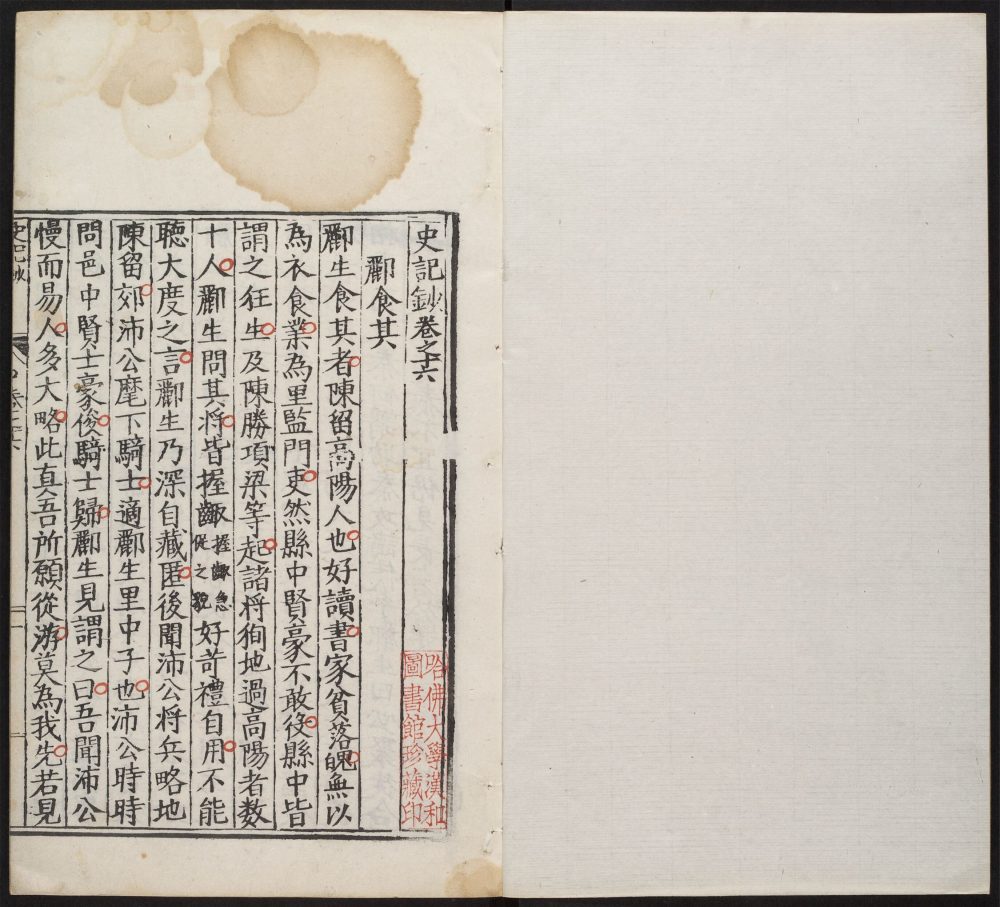 史記鈔卷之十六
酈食其
酈生食其者陳留高陽人也好讀書家貧落魄無以
為衣食業為里監門吏然縣中賢豪不敢役縣中皆
謂之狂生及陳勝項梁等起諸將徇地過高陽者數
十人酈生問其將皆握齱握齱急促之貌好苛禮自用不能
聽大度之言酈生乃深自藏匿後聞沛公將兵略地
陳留郊沛公麾下騎士適酈生里中子也沛公時時
問邑中賢士豪俊騎士歸酈生見謂之曰吾聞沛公
慢而易人多大略此真吾所願從游莫為我先若見
史記鈔
哈佛大學漢和
圖書館珍藏印